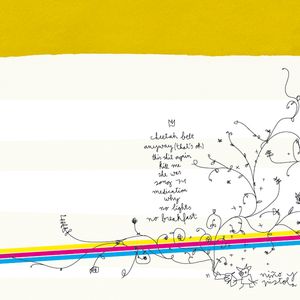 cheetah belt
anyway (that's oh)
this shit again
kill me
she was
song
medication
why
no lights
no breakfast
niño y
pistola